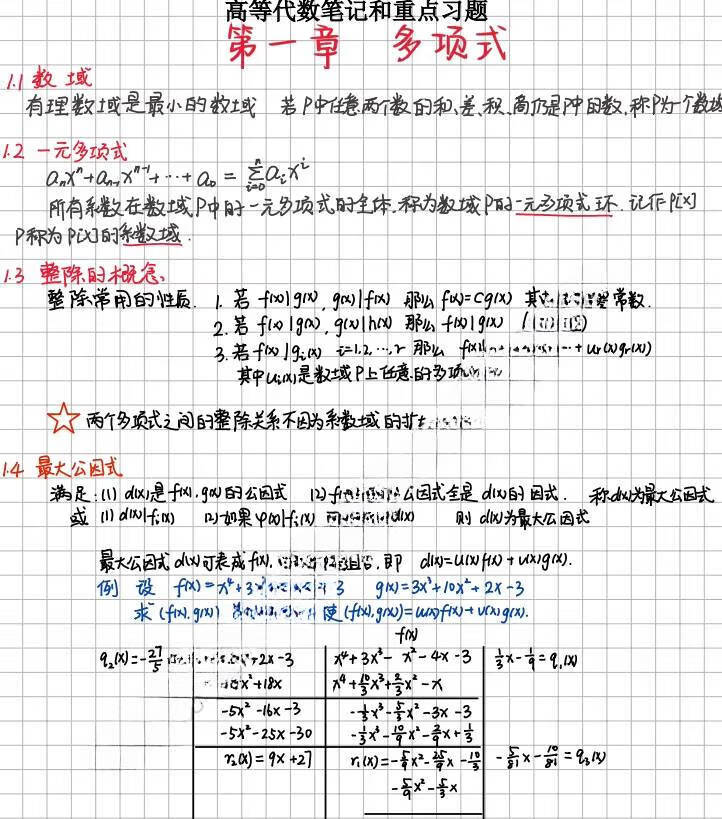 高等代数笔记和重点习题
第一章 多项式
1.1 数域
有理数域是最小的数域 若P中任意两个数的和、差、积、商仍是P中的数,称P为一个数域
1.2 一元多项式
aₙxⁿ+aₙ₋₁xⁿ⁻¹+⋯+a₀ = Σⁿᵢ₌₀ aᵢxⁱ
所有系数在数域P中的一元多项式的全体,称为数域P的一元多项式环,记作P[x]
P称为P[x]的系数域.
1.3 整除的概念
整除常用的性质. 1. 若 f(x)|g(x), g(x)|f(x) 那么 f(x)=cg(x) 其中 常数.
2. 若 f(x)|g(x), g(x)|h(x) 那么 f(x)|g(x)
3. 若 f(x)|gᵢ(x) i=1,2,⋯,r 那么 f(x)| ⋯+uᵣ(x)gᵣ(x)
其中uᵢ(x)是数域P上任意的多项
☆ 两个多项式之间的整除关系不因为系数域的扩
1.4 最大公因式
满足:(1) d(x)是f(x),g(x)的公因式 (2) 公因式全是d(x)的因式. 称d(x)为最大公因式
或 (1) d(x)|fᵢ(x) (2)如果φ(x)|fᵢ(x) d(x) 则 d(x)为最大公因式
最大公因式d(x)可表成f(x), 组合,即 d(x)=u(x)f(x)+v(x)g(x).
例 设 f(x)=x⁴+3x³ 3 g(x)=3x³+10x²+2x-3
求 (f(x),g(x)) 使(f(x),g(x))=u(x)f(x)+v(x)g(x).
f(x)
q₂(x)=-27/5 +2x-3 x⁴+3x³-x²-4x-3 1/3x-1/9=q₁(x)
x²+18x x⁴+10/3x³+2/3x²-x
-5x²-16x-3 -1/3x³-5/3x²-3x-3
-5x²-25x-30 -1/3x³-10/9x²-2/9x+1/3
r₂(x)=9x+27 r₁(x)=-5/9x²-25/9x-10/3 -5/81x-10/81=q₃(x)
-5/9x²-5/3x